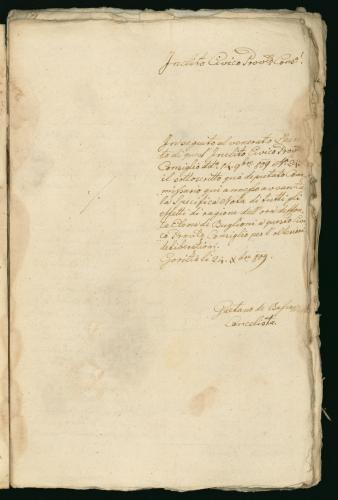 Inclito Civico Provv.º Cons.º
In seguito al venerato Decre-
to di quest' Inclito Civico Provv.
Consiglio dd.º 14. 9bre 809 Nº 34.
il sottoscritto qua deputato Com-
missario qui annesso avvanza
la Specifica Nota di tutti gli
effetti di ragione dell' ora defon-
ta Elena de Buglioni a questo Civi-
co Provv.º Consiglio per l' ulteriori
deliberazioni.
Gorizia li 24. Xbre 809.
Gaetano de
Cancelista